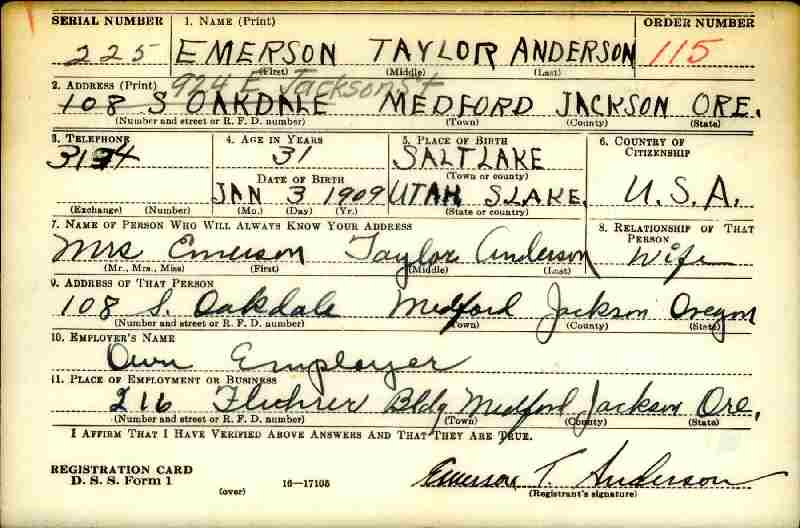 SERIAL NUMBER 1. NAME (Print) ORDER NUMBER
225 EMERSON TAYLOR ANDERSON 115
(First) (Middle) (Last)
2. ADDRESS (Print) 924 E Jackson St
108 S OAKDALE MEDFORD JACKSON ORE.
(Number and street or R. F. D. number) (Town) (County) (State)
3. TELEPHONE 4. AGE IN YEARS 5. PLACE OF BIRTH 6. COUNTRY OF CITIZENSHIP
3134 31 SALTLAKE
(Town or county)
DATE OF BIRTH
JAN 3 1909 UTAH S.LAKE. U.S.A.
(Exchange) (Number) (Mo.) (Day) (Yr.) (State or country)
7. NAME OF PERSON WHO WILL ALWAYS KNOW YOUR ADDRESS 8. RELATIONSHIP OF THAT PERSON
Mrs Emerson Taylor Anderson Wife
(Mr., Mrs., Miss) (First) (Middle) (Last)
9. ADDRESS OF THAT PERSON
108 S. Oakdale Medford Jackson Oregon
(Number and street or R. F. D. number) (Town) (County) (State)
10. EMPLOYER'S NAME
Own Employer
11. PLACE OF EMPLOYMENT OR BUSINESS
216 Fluhrer Bldg Medford Jackson Ore.
(Number and street or R. F. D. number) (Town) (County) (State)
I AFFIRM THAT I HAVE VERIFIED ABOVE ANSWERS AND THAT THEY ARE TRUE.
REGISTRATION CARD
D. S. S. Form 1 16—17105 Emerson T. Anderson
(over) (Registrant's signature)